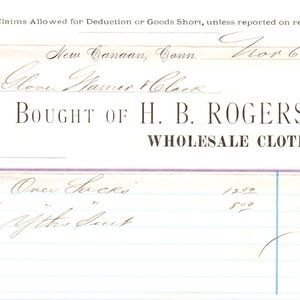 Claims Allowed for Deduction or Goods Short, unless reported on re
New Canaan, Conn. Nov 6
Glover Warner & Clark
BOUGHT OF H. B. ROGERS
WHOLESALE CLOTH
Over Sacks 12.50
" Suit 8.50